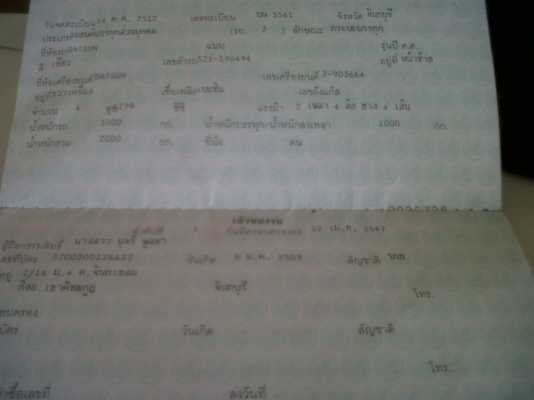 วันจดทะเบียน 14 ต.ค. 2512 เลขทะเบียน บน 5561 จังหวัด จันทบุรี
ประเภท รถยนต์บรรทุกส่วนบุคคล (รย. 3 ) ลักษณะ กระบะบรรทุก
ยี่ห้อรถ DATSUN แบบ รุ่นปี ค.ศ.
สี เขียว เลขตัวรถ 521-196494 อยู่ที่ หน้าซ้าย
ยี่ห้อเครื่องยนต์ DATSUN เลขเครื่องยนต์ J-903664
อยู่ที่ ขวาเครื่อง เชื้อเพลิง เบนซิน เลขถังแก๊ส
จำนวน 4 สูบ 1299 ซีซี แรงม้า 2 เพลา 4 ล้อ ยาง 4 เส้น
น้ำหนักรถ 1000 กก. น้ำหนักบรรทุก/น้ำหนักลงเพลา 1000 กก.
น้ำหนักรวม 2000 กก. ที่นั่ง คน
เจ้าของรถ
ลำดับที่ 1 วันที่ครอบครองรถ 12 เม.ย. 2547
ผู้ถือกรรมสิทธิ์ นางสาว
เลขที่บัตร 3200300126622 วันเกิด 6 ม.ค. 2509 สัญชาติ ไทย
ที่อยู่ 2/16 ม.4 ต.จันทเขลม
กิ่งอ.เขาคิชฌกูฏ จันทบุรี โทร.
วันเกิด สัญชาติ
โทร.
ลงวันที่